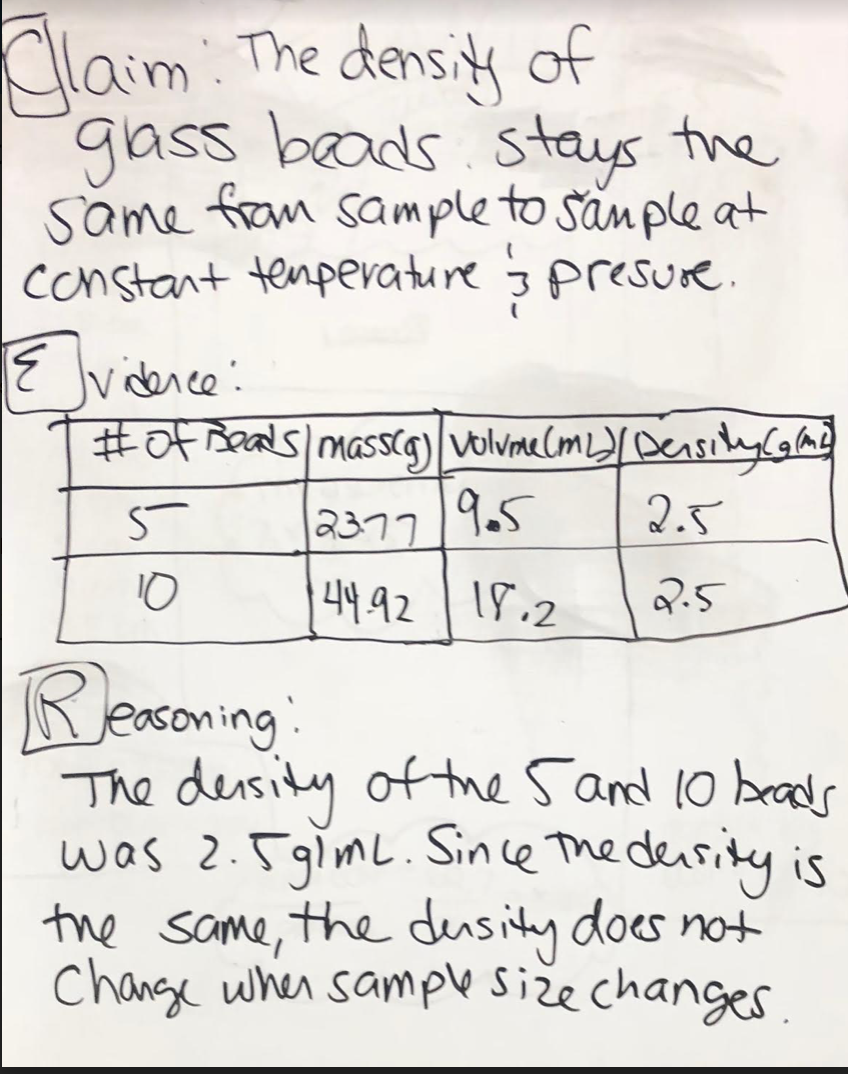 Claim: The density of
glass beads stays the
same from sample to sample at
constant temperature & presure.
Evidence:
# of Beads mass(g) Volume(mL) Density(g/mL)
5 23.77 9.5 2.5
10 44.92 18.2 2.5
Reasoning:
The density of the 5 and 10 beads
was 2.5 g/mL. Since the density is
the same, the density does not
Change when sample size changes.